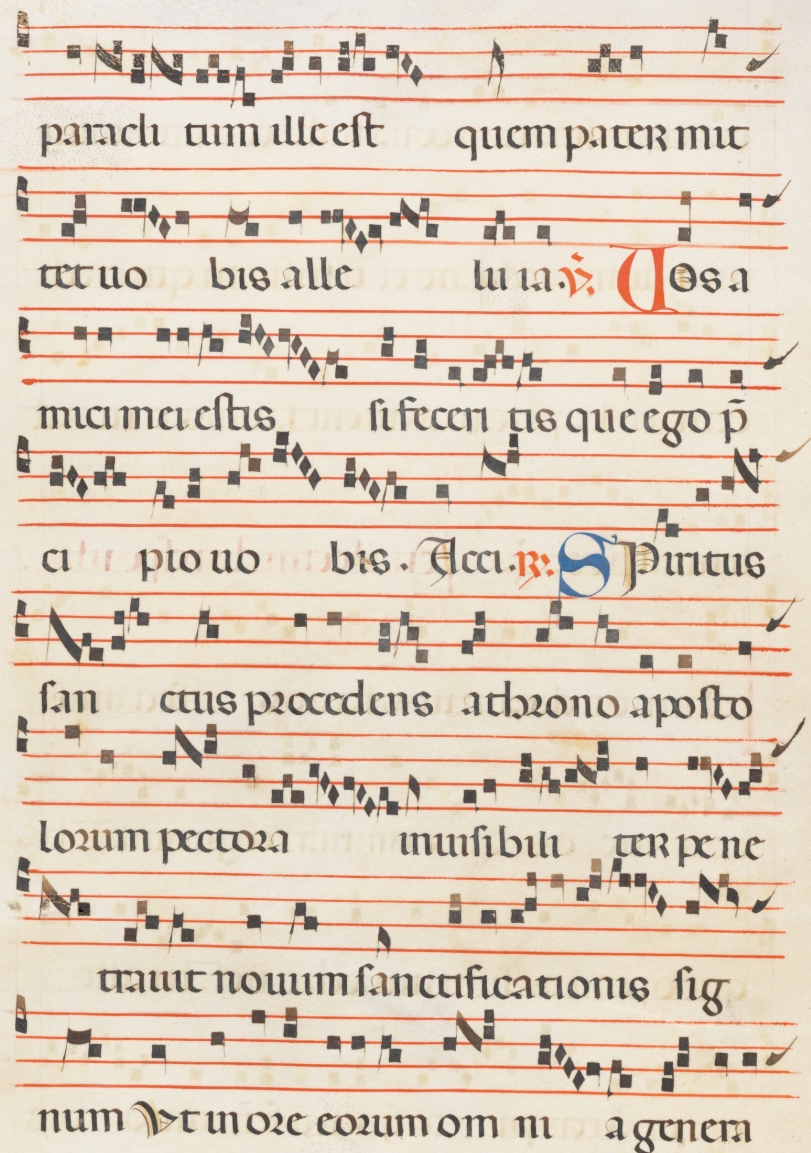 paracli tum ille est quem pater mit
tet uo bis alle lu ia. ℣. Uos a
mici mei estis si feceri tis que ego p̄
ci pio uo bis. Acci. ℟. Spiritus
san ctus procedens a throno aposto
lorum pectora inuisibili ter pe ne
trauit nouum sanctificationis sig
num Ut in ore eorum om ni a genera